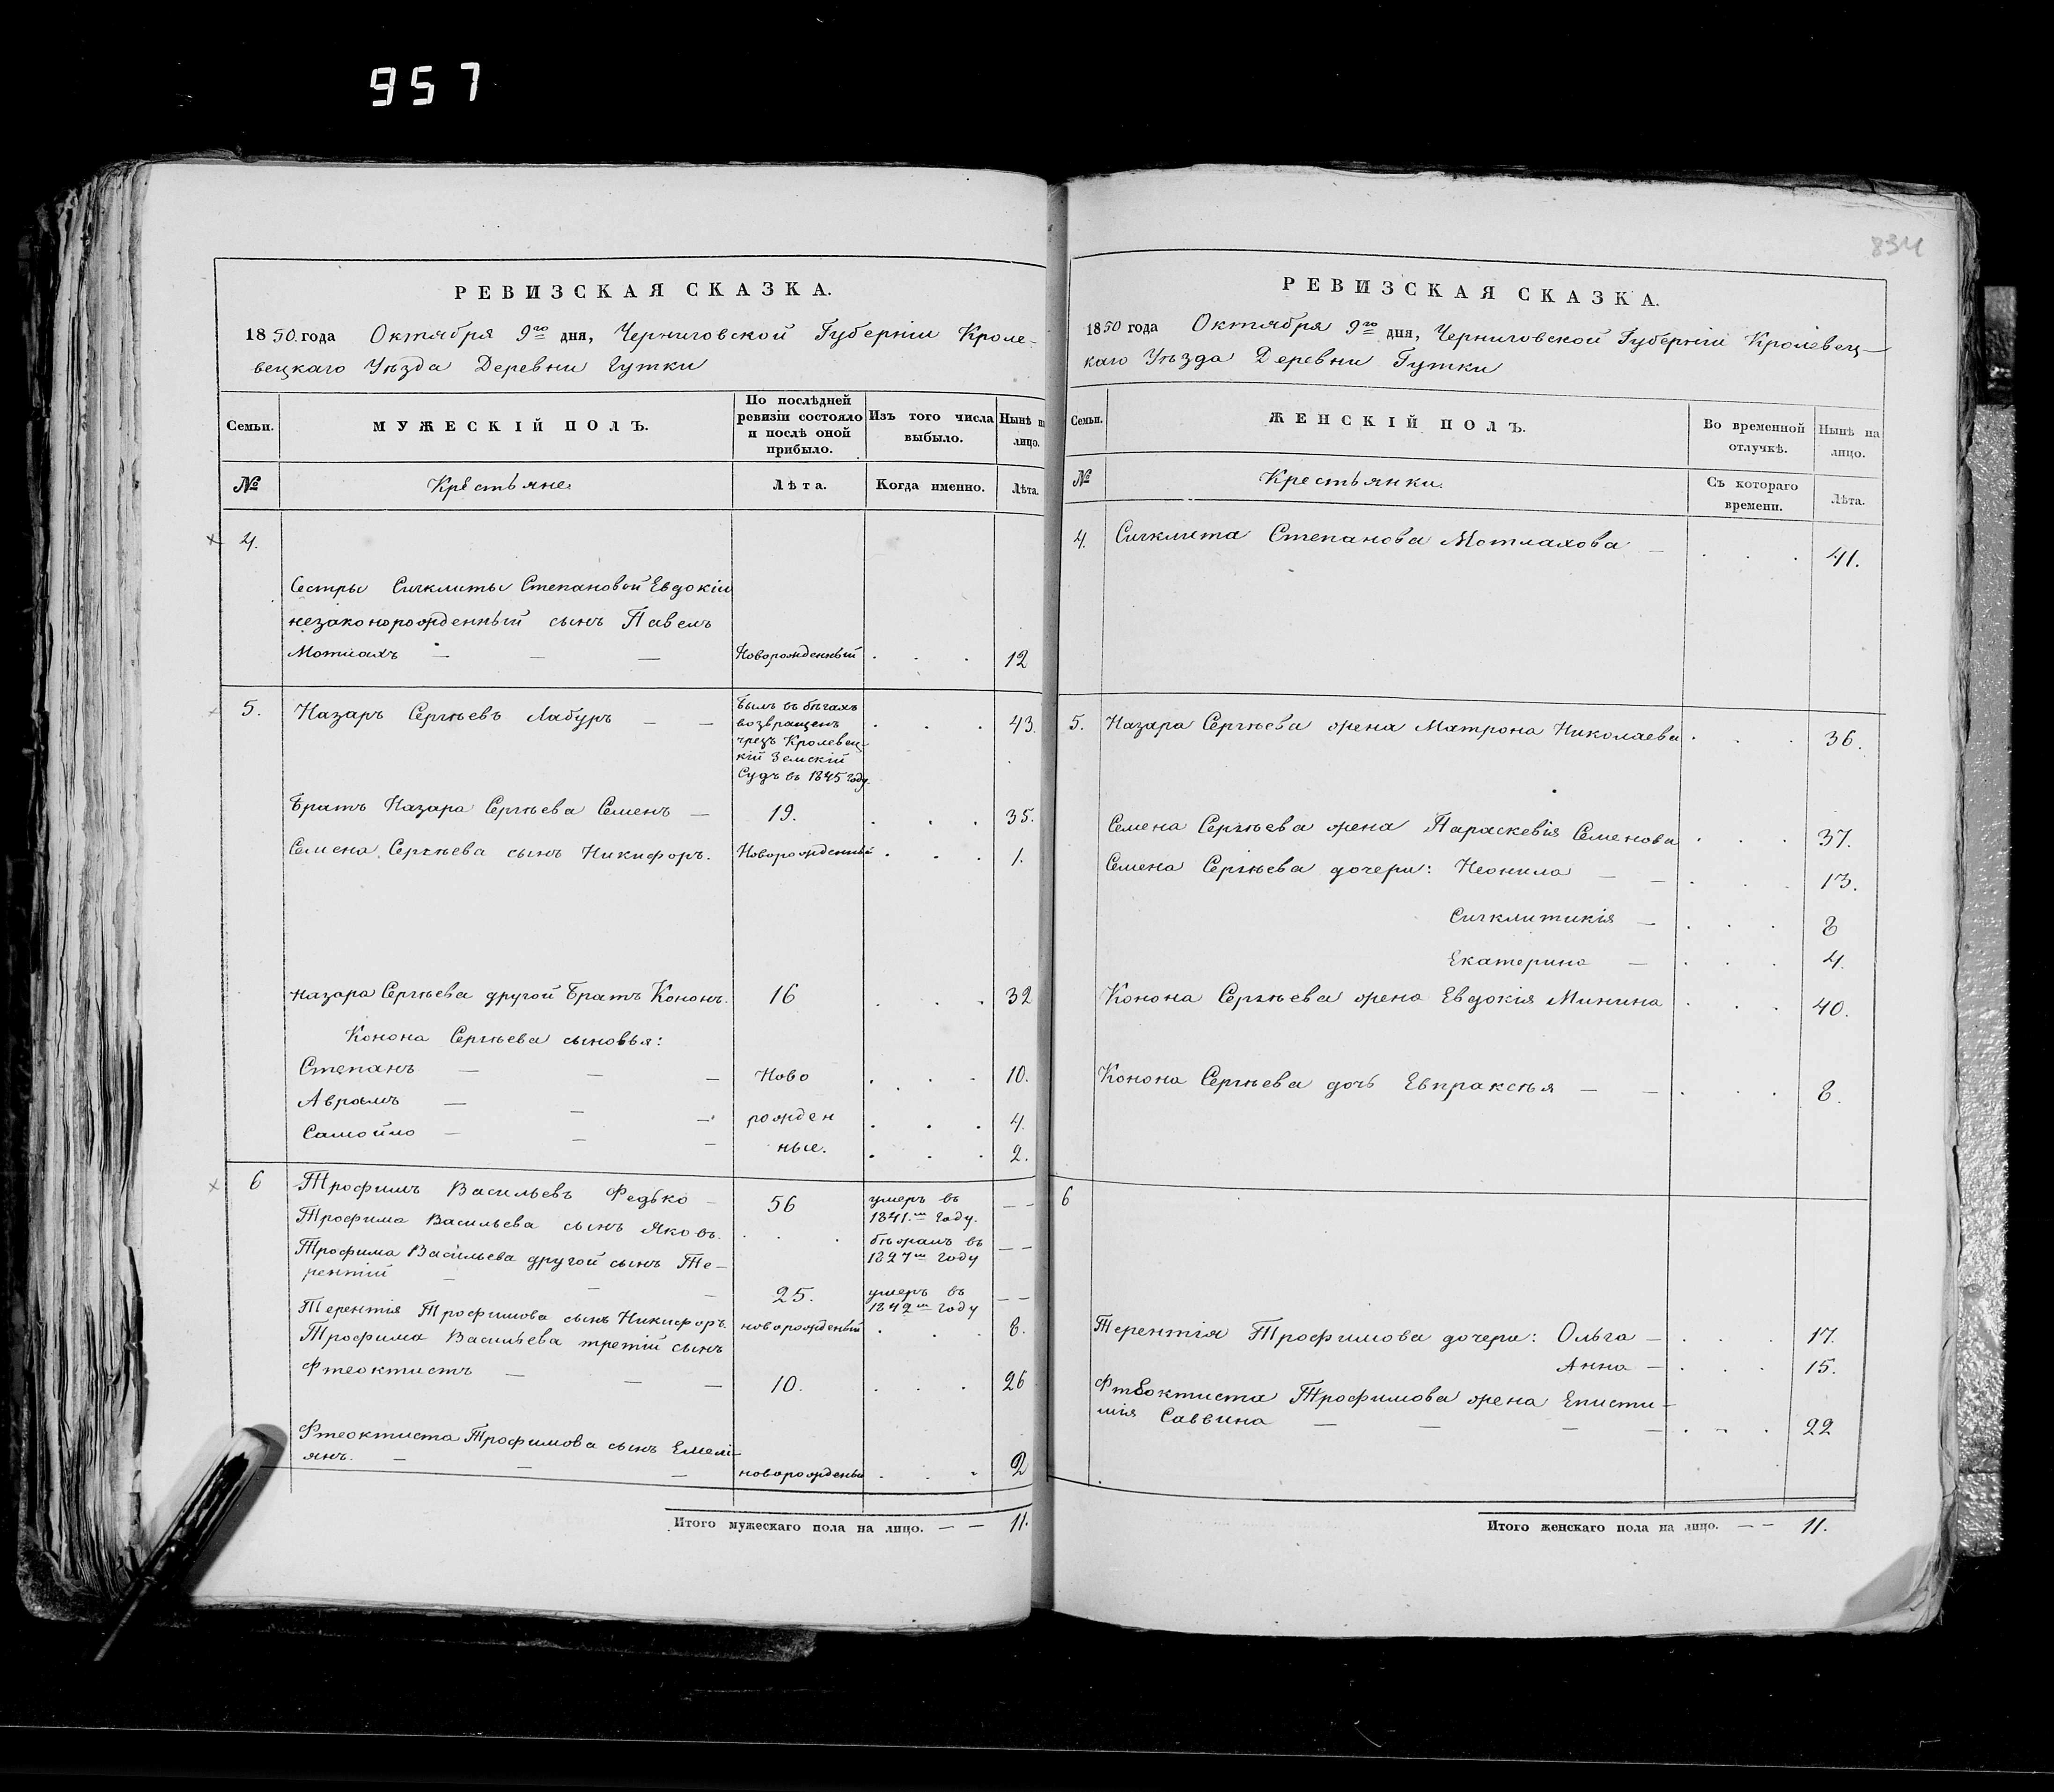 957
834
РЕВИЗСКАЯ СКАЗКА.
1850. года Октября 9го дня, Черниговской Губерніи Кроле-
вецкаго Уѣзда Деревни Гутки
Семьи. МУЖЕСКІЙ ПОЛЪ. По послѣдней ревизіи состояло и послѣ оной прибыло. Изъ того числа выбыло. Нынѣ на лицо.
№ Крестьяне. Лѣта. Когда именно. Лѣта.
4.
Сестры Сигклиты Степановой Евдокіи
незаконорожденный сынъ Павелъ
Мотлахъ — — — Новорожденный . . . 12
5. Назаръ Сергѣевъ Лабуръ — — Былъ въ бѣгахъ . . . 43.
возвращенъ
чрезъ Кролевец-
кій Земскій
Судъ въ 1845 году.
Братъ Назара Сергѣева Семенъ — 19. . . . 35.
Семена Сергѣева сынъ Никифоръ. Новорожденный . . . 1.
Назара Сергѣева другой Братъ Кононъ. 16 . . . 32
Конона Сергѣева сыновья:
Степанъ — — — Ново . . . 10.
Аврамъ — — — рожден . . . 4.
Самойло — — — ные. . . . 2.
6 Трофимъ Васильевъ Федько — 56 умеръ въ — —
1841.м году.
Трофима Васильева сынъ Яковъ. . . . бѣжалъ въ — —
1827м году
Трофима Васильева другой сынъ Те-
рентій — — — 25. умеръ въ — —
1842м году
Терентія Трофимова сынъ Никифоръ. новорожденый . . . 8.
Трофима Васильева третій сынъ
Фтеоктистъ — — — 10. . . . 26
Фтеоктиста Трофимова сынъ Емелі-
янъ. — — — новорожденый . . . 2
Итого мужескаго пола на лицо. — — 11.
РЕВИЗСКАЯ СКАЗКА.
1850 года Октября 9го дня, Черниговской Губерніи Кролевец-
каго Уѣзда Деревни Гутки
Семьи. ЖЕНСКІЙ ПОЛЪ. Во временной отлучкѣ. Нынѣ на лицо.
№ Крестьянки. Съ котораго времени. Лѣта.
4. Сигклита Степанова Мотлахова — . . . 41.
5. Назара Сергѣева жена Матрона Николаева . . . 36.
Семена Сергѣева жена Параскевія Семенова . . . 37.
Семена Сергѣева дочери: Неонила — — . . . 13.
Сигклитикія — . . . 8
Екатерина — . . . 4.
Конона Сергѣева жена Евдокія Минина . . . 40.
Конона Сергѣева дочь Евпраксѣя — — . . . 8.
6
Терентія Трофимова дочери: Ольга — . . . 17.
Анна — . . . 15.
Фтеоктиста Трофимова жена Еписти-
мія Саввина — — — — . . . 22
Итого женскаго пола на лицо. — — 11.